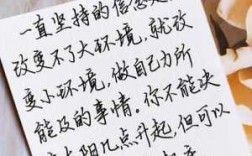 一直坚持的信念是
改变不了大环境，就改
变小环境，做自己力所
能及的事情。你不能决
太阳几点升起，但可以